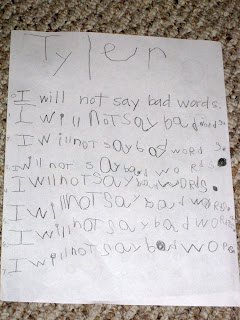 Tyler
I will not say bad words.
I will not say bad words.
I will not say bad words.
I will not say bad words.
I will not say bad words.
I will not say bad words.
I will not say bad words.
I will not say bad words.